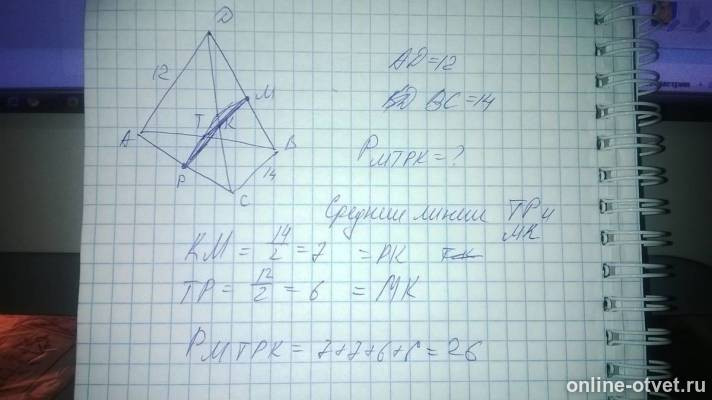 D
12
T
M
K
A
B
14
P
C
AD=12
BC=14
P MTPK=?
Средние линии TP и
MK
KM = 14/2 = 7 = PK
TP = 12/2 = 6 = MK
P MTPK = 7+7+6+6=26
online-otvet.ru